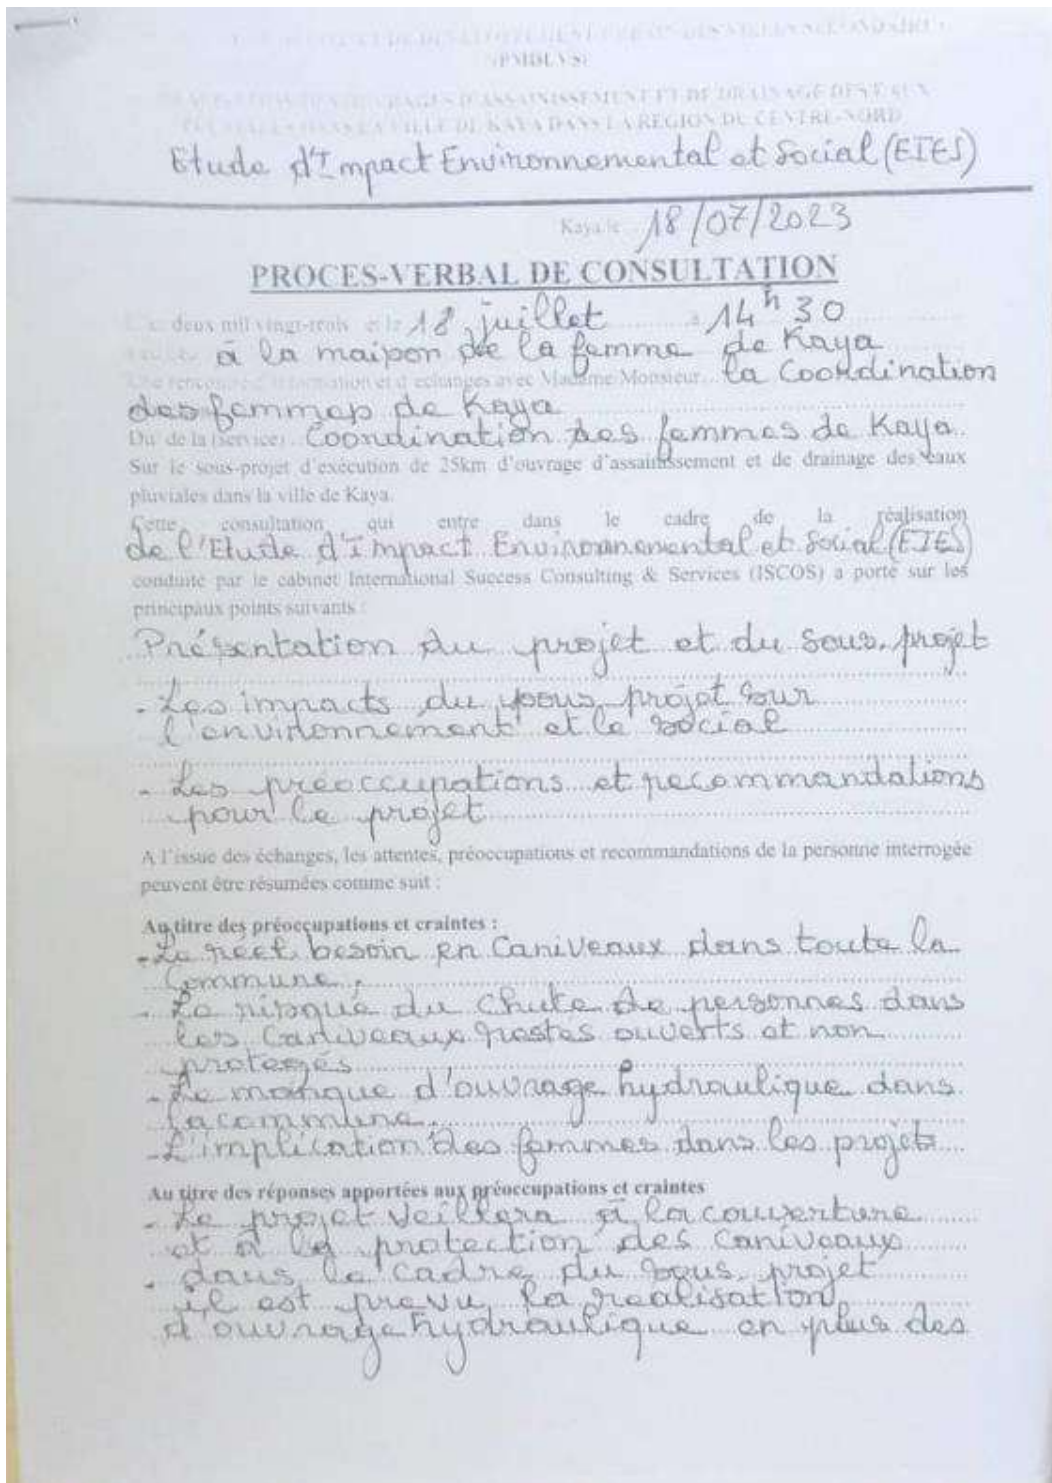 ET DE DEVELOPPEMENT URBAIN DES VILLES SECONDAIRES
D'OUVRAGES D'ASSAINISSEMENT ET DE DRAINAGE DES EAUX
PLUVIALES DANS LA VILLE DE KAYA DANS LA REGION DU CENTRE-NORD
Etude d'Impact Environnemental et Social (EIES)
Kaya le 18/07/2023
PROCES-VERBAL DE CONSULTATION
deux mil vingt-trois et le 18 juillet à 14h30
à la maison de la femme de Kaya
Une rencontre d'information et d'échanges avec Madame/Monsieur la Coordination
des femmes de Kaya
Du/de la (service) Coordination des femmes de Kaya
Sur le sous-projet d'exécution de 25km d'ouvrage d'assainissement et de drainage des eaux
pluviales dans la ville de Kaya.
Cette consultation qui entre dans le cadre de la réalisation
de l'Etude d'Impact Environnemental et Social (EIES)
conduite par le cabinet International Success Consulting & Services (ISCOS) a porté sur les
principaux points suivants :
Présentation du projet et du sous-projet
- Les impacts du sous projet sur
l'environnement et le social
- Les préoccupations et recommandations
pour le projet
A l'issue des échanges, les attentes, préoccupations et recommandations de la personne interrogée
peuvent être résumées comme suit :
Au titre des préoccupations et craintes :
- Le reel besoin en caniveaux dans toute la
Commune,
- Le risque du chute de personnes dans
les caniveaux restes ouverts et non
proteges
- Le manque d'ouvrage hydraulique dans
la commune.
- L'implication des femmes dans les projets
Au titre des réponses apportées aux préoccupations et craintes
- Le projet veillera à la couverture
et à la protection des caniveaux
- dans le cadre du sous-projet
il est prevu la realisation
d'ouvrage hydraulique en plus des